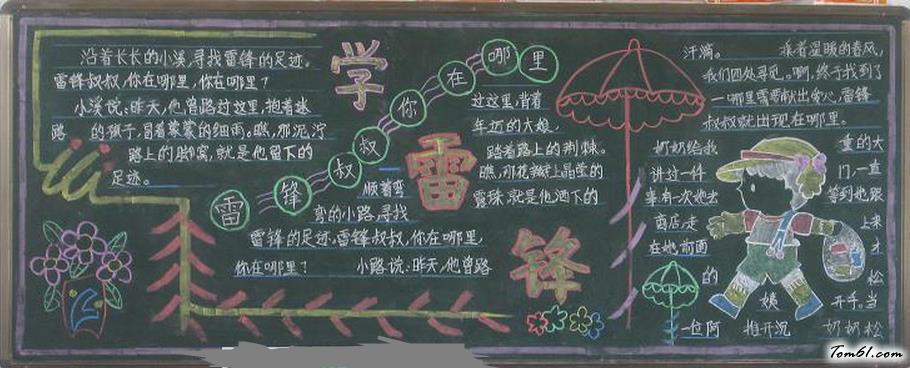 学
雷
锋
雷锋叔叔你在哪里
沿着长长的小溪,寻找雷锋的足迹。
雷锋叔叔,你在哪里,你在哪里?
小溪说:昨天,他曾路过这里,抱着迷
路的孩子,冒着蒙蒙的细雨。瞧,那泥泞
路上的脚窝,就是他留下的
足迹。
顺着弯
弯的小路,寻找
雷锋的足迹。雷锋叔叔,你在哪里,
你在哪里? 小路说:昨天,他曾路
过这里,背着
年迈的大娘,
踏着路上的荆棘。
瞧,那花瓣上晶莹的
露珠,就是他洒下的
汗滴。 乘着温暖的春风,
我们四处寻觅。啊,终于找到了
—哪里需要献出爱心,雷锋
叔叔就出现在哪里。
奶奶给我
讲过一件
事:有一次她去
商店,走
在她前面
的
一位阿
姨
推开沉
重的大
门,一直
等到她跟
上来
才
松
开手。当
奶奶松
Tom61.com